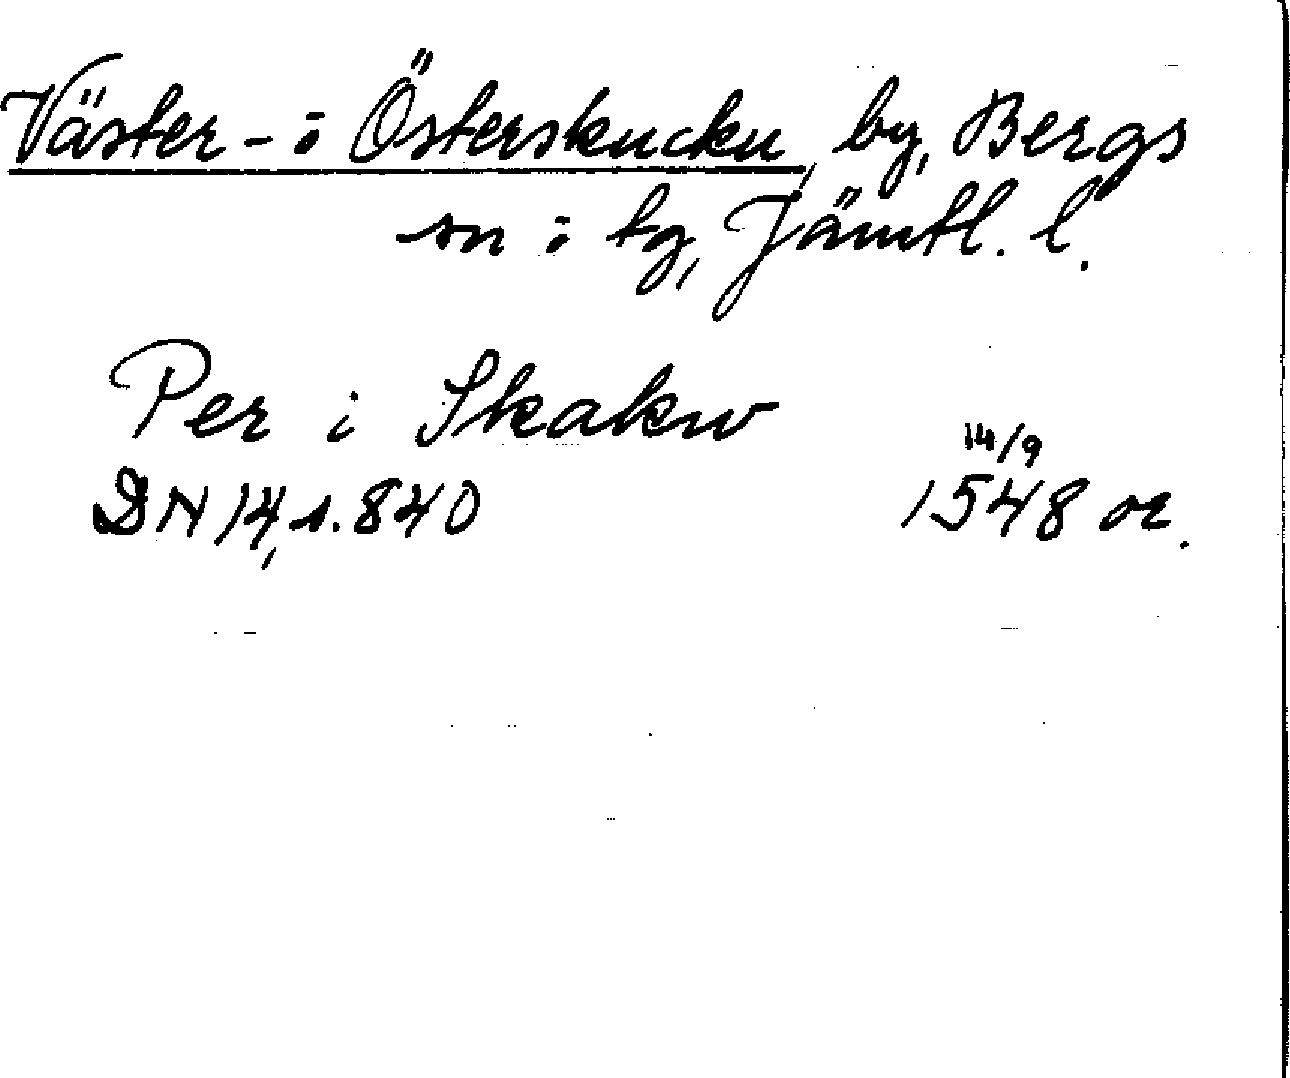 Väster- ÷ Österskucku, by, Bergs
sn ÷ tg, Jämtl. l.
Per i Skakw
14/9
DN 14, s. 840 1548 or.